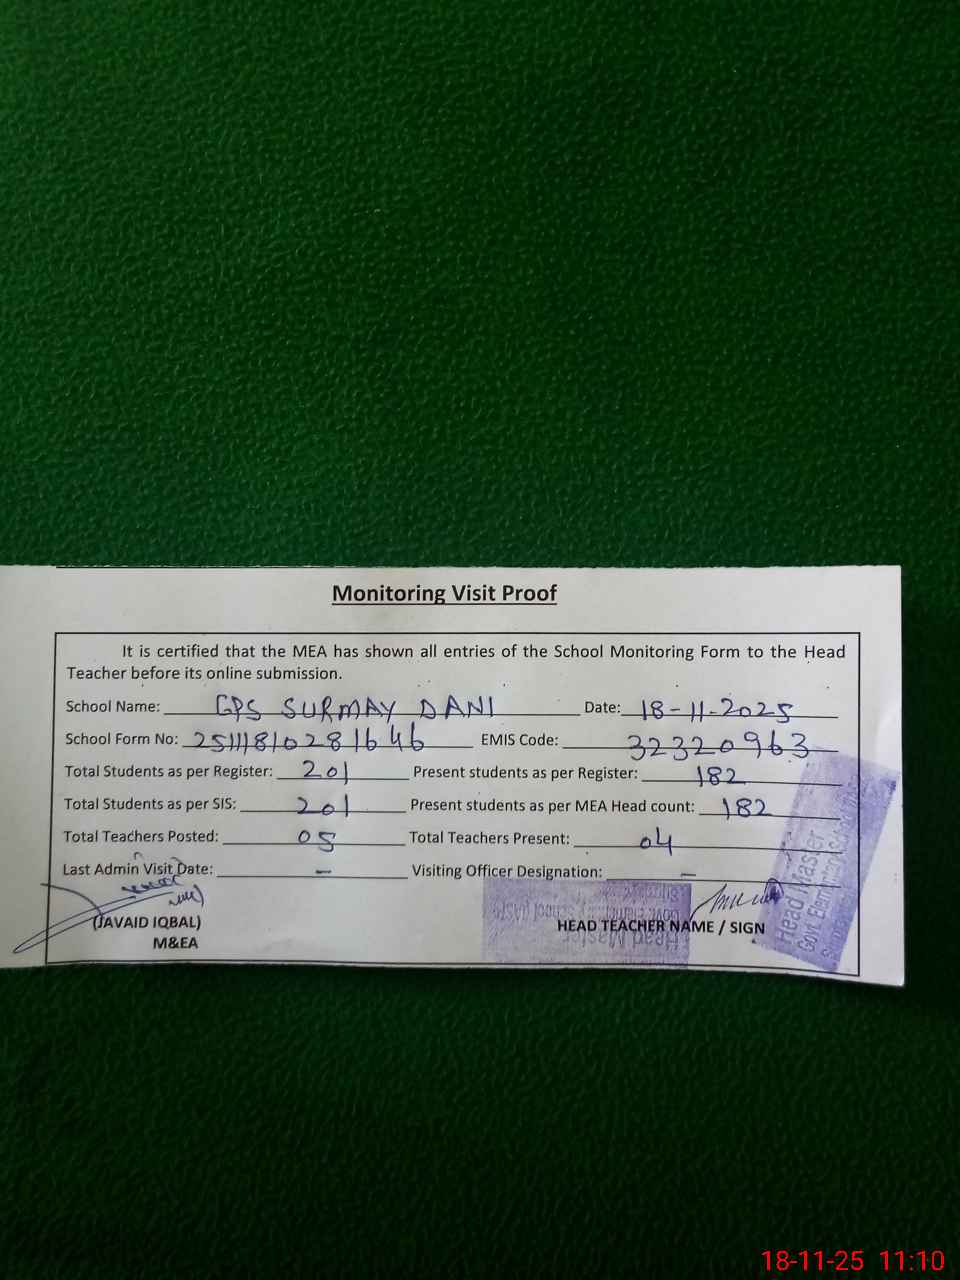 Monitoring Visit Proof
It is certified that the MEA has shown all entries of the School Monitoring Form to the Head
Teacher before its online submission.
School Name: GPS SURMAY DANI Date: 18-11-2025
School Form No: 2511181028 1646 EMIS Code: 32320963
Total Students as per Register: 201 Present students as per Register: 182
Total Students as per SIS: 201 Present students as per MEA Head count: 182
Total Teachers Posted: 05 Total Teachers Present: 04
Last Admin Visit Date: - Visiting Officer Designation: -
(JAVAID IQBAL)
M&EA
HEAD TEACHER NAME / SIGN
Head Master
Govt. Elementary School
Head Master
18-11-25 11:10